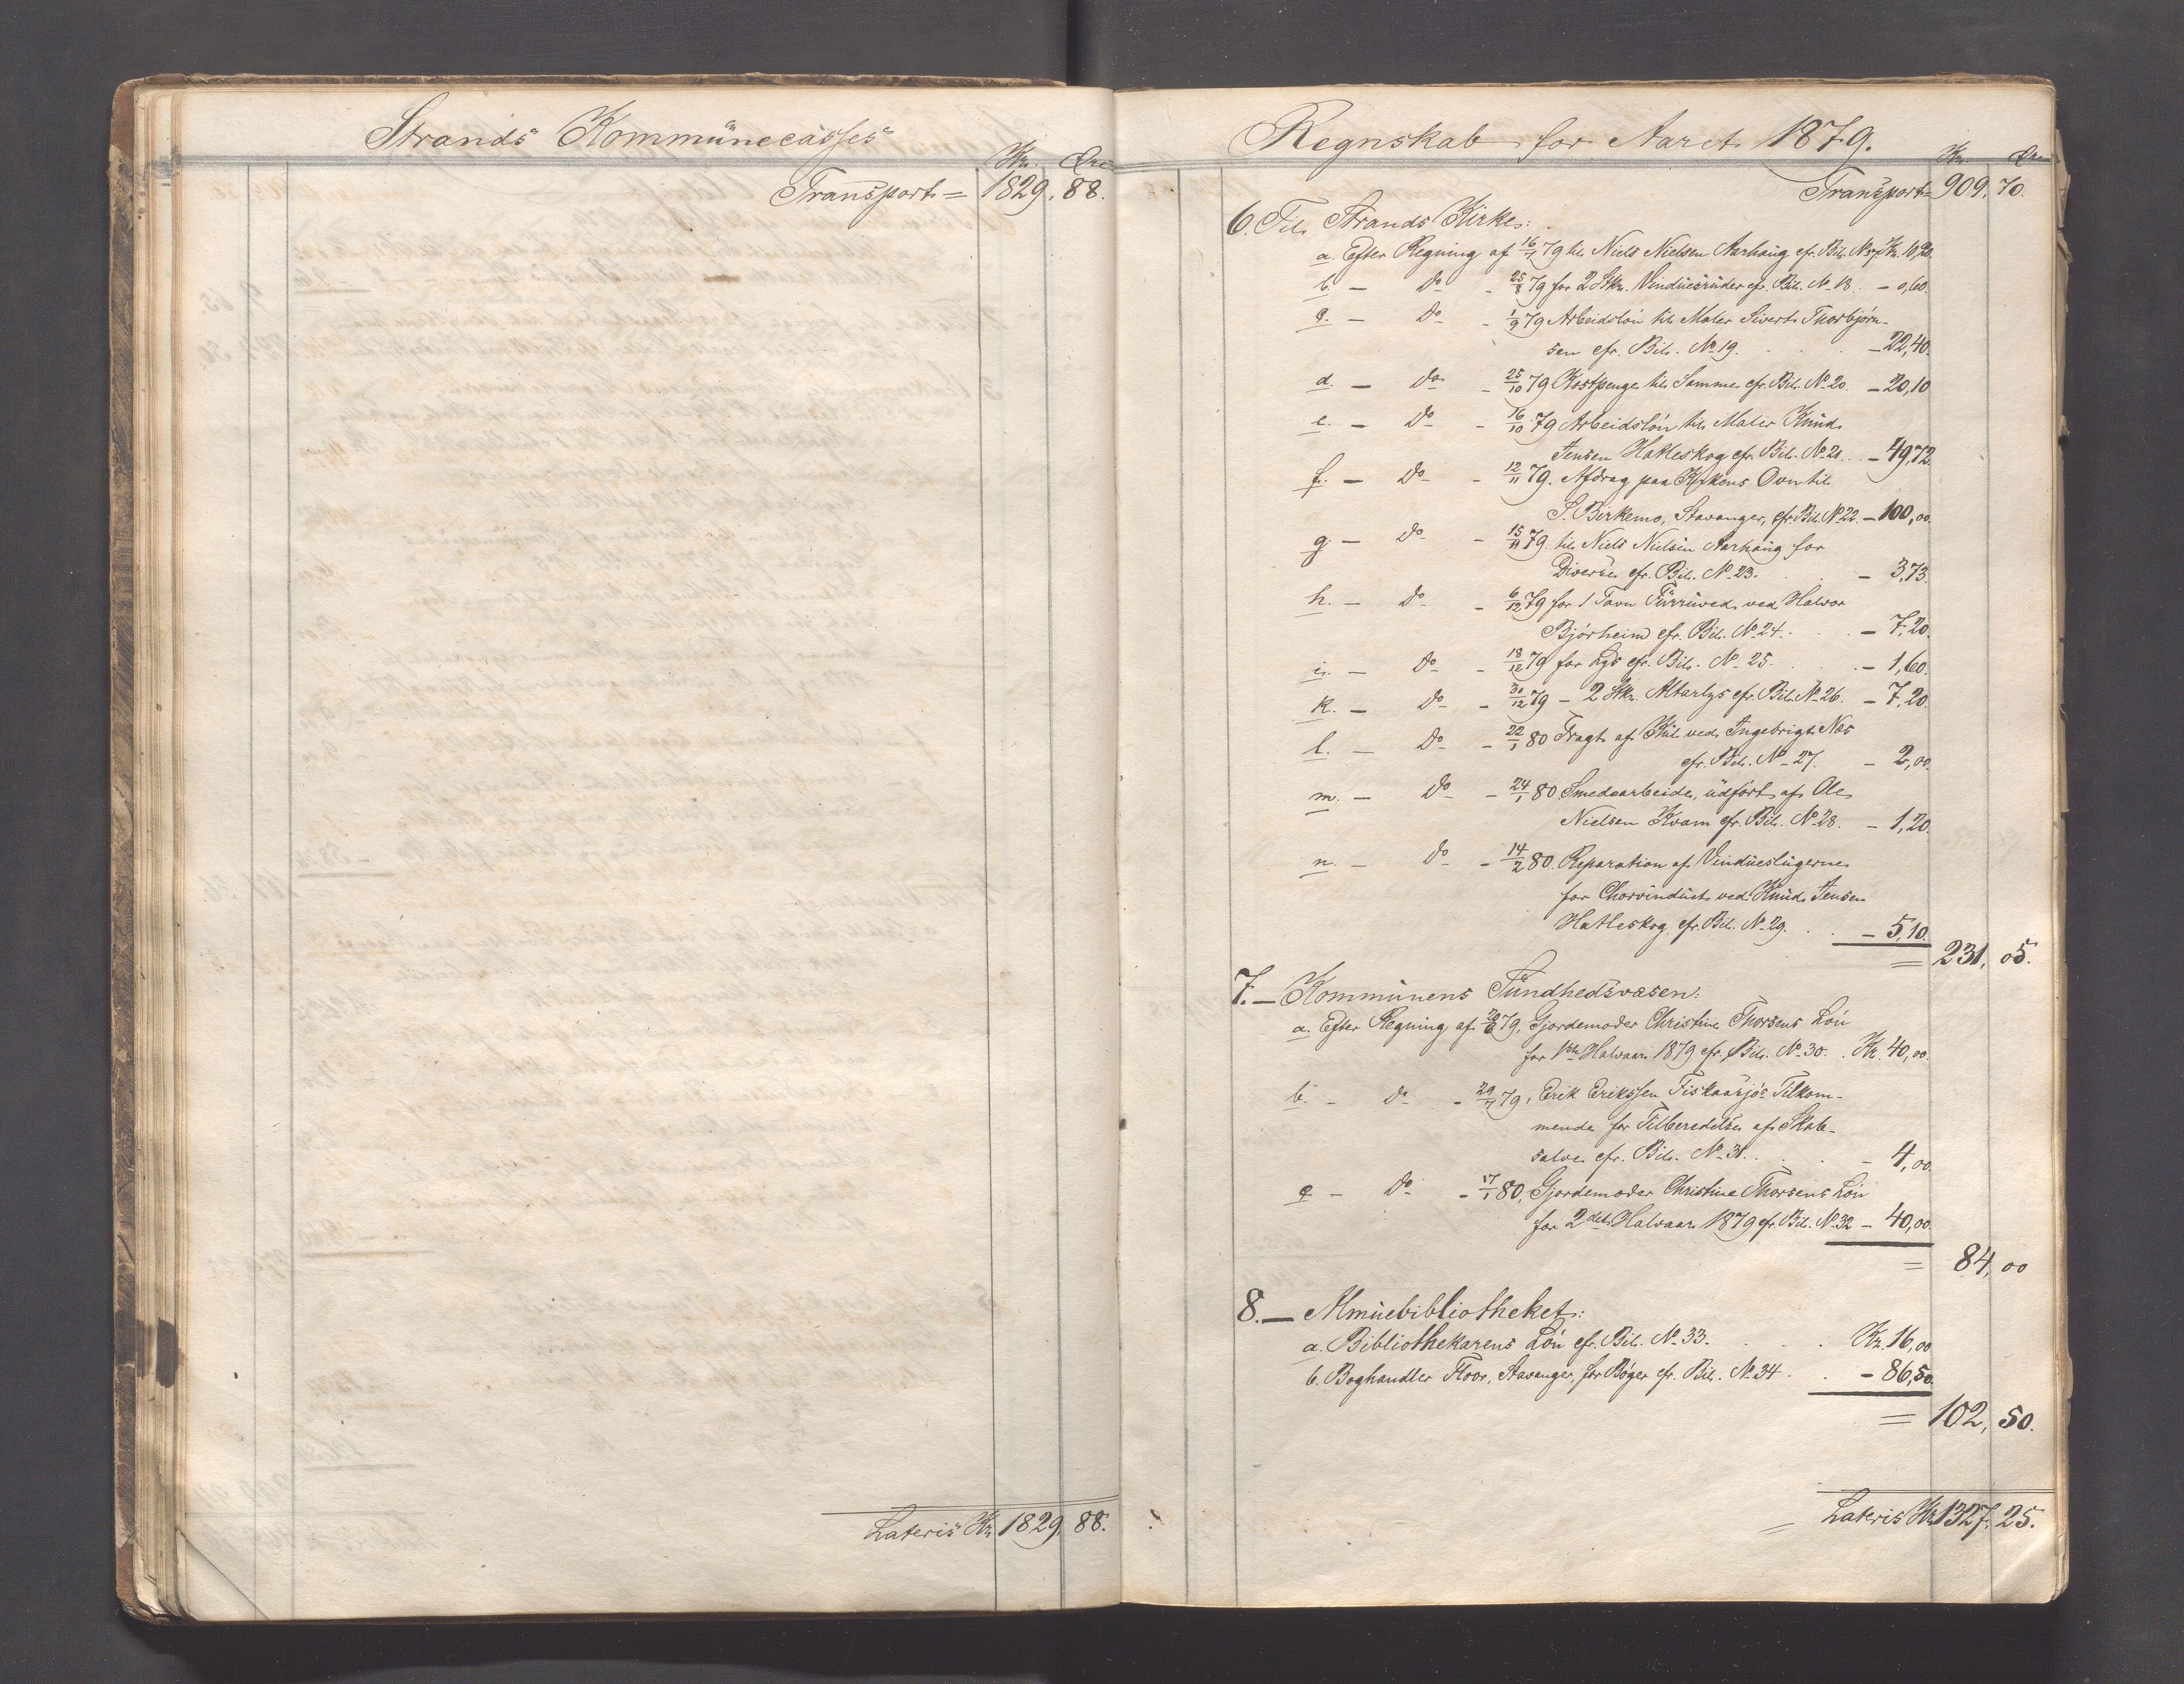 Strands Kommunecasses
Kr. Øre
Transport = 1829. 88.
Lateris Kr. 1829. 88.
Regnskab for Aaret 1879.
Kr. Øre
Transport = 909. 70.
6. Til Strands Kirke:
a. Efter Regning af 16/7 79 til Niels Nielsen Aarhaug cfr. Bil. No 17 Kr. 10,20.
b. — Do - 25/8 79 for 2 Stkr. Vinduesruder cfr. Bil. No 18. - 0,60.
c. — Do - 1/9 79 Arbeidsløn til Maler Sivert Thorbjørn-
sen cfr. Bil. No 19. . . . - 22,40.
d. — Do - 25/10 79 Kostpenge til Samme cfr. Bil. No 20. - 20,10
e. — Do - 16/10 79 Arbeidsløn til Maler Knud
Jensen Hatleskog cfr. Bil. No 21. . - 49,72.
f. — Do - 12/11 79. Afdrag paa Kirkens Ovn til
S. Birkemo, Stavanger, cfr. Bil. No 22. - 100,00.
g. — Do - 15/11 79. til Niels Nielsen Aarhaug for
Diverse cfr. Bil. No 23. . . - 3,73.
h. — Do - 6/12 79 for 1 Favn Furruved ved Halvor
Bjørheim cfr. Bil. No 24. . . - 7,20.
i. — Do - 18/12 79 for Lys cfr. Bil. No 25. . . - 1,60.
k. — Do - 30/12 79 - 2 Stkr. Alterlys cfr. Bil. No 26. - 7,20.
l. — Do - 22/1 80 Fragt af Kul ved Ingebrigt Næs
cfr. Bil. No 27. - 2,00.
m. — Do - 24/1 80 Smedearbeide, udført af Ole
Nielsen Kvam cfr. Bil. No 28. - 1,20.
n. — Do - 14/2 80. Reparation af Vindueslugerne
for Chorvinduet ved Knud Jensen
Hatleskog, cfr. Bil. No 29. . . - 5,10.
= 231, 05.
7. — Kommunens Sundhedsvæsen:
a. Efter Regning af 79, Gjordemoder Christine Thorsens Løn
for 1ste Halvaar 1879 cfr. Bil. No 30. . Kr. 40,00.
b. - Do - 29/11 79, Erik Erikssen Fiskaasjø's Tilkom-
mende for Tilberedelse af Skab-
salve cfr. Bil. No 31. . . . - 4,00.
c - Do - 17/1 80, Gjordemoder Christine Thorsens Løn
for 2det Halvaar 1879 cfr. Bil. No 32 - 40,00.
= 84, 00
8. — Almuebibliotheket:
a. Bibliothekarens Løn cfr. Bil. No 33. . . . Kr. 16,00
b. Boghandler Floor, Stavanger, for Bøger cfr. Bil. No 34 . . - 86,50.
= 102, 50.
= Lateris Kr. 1327. 25.